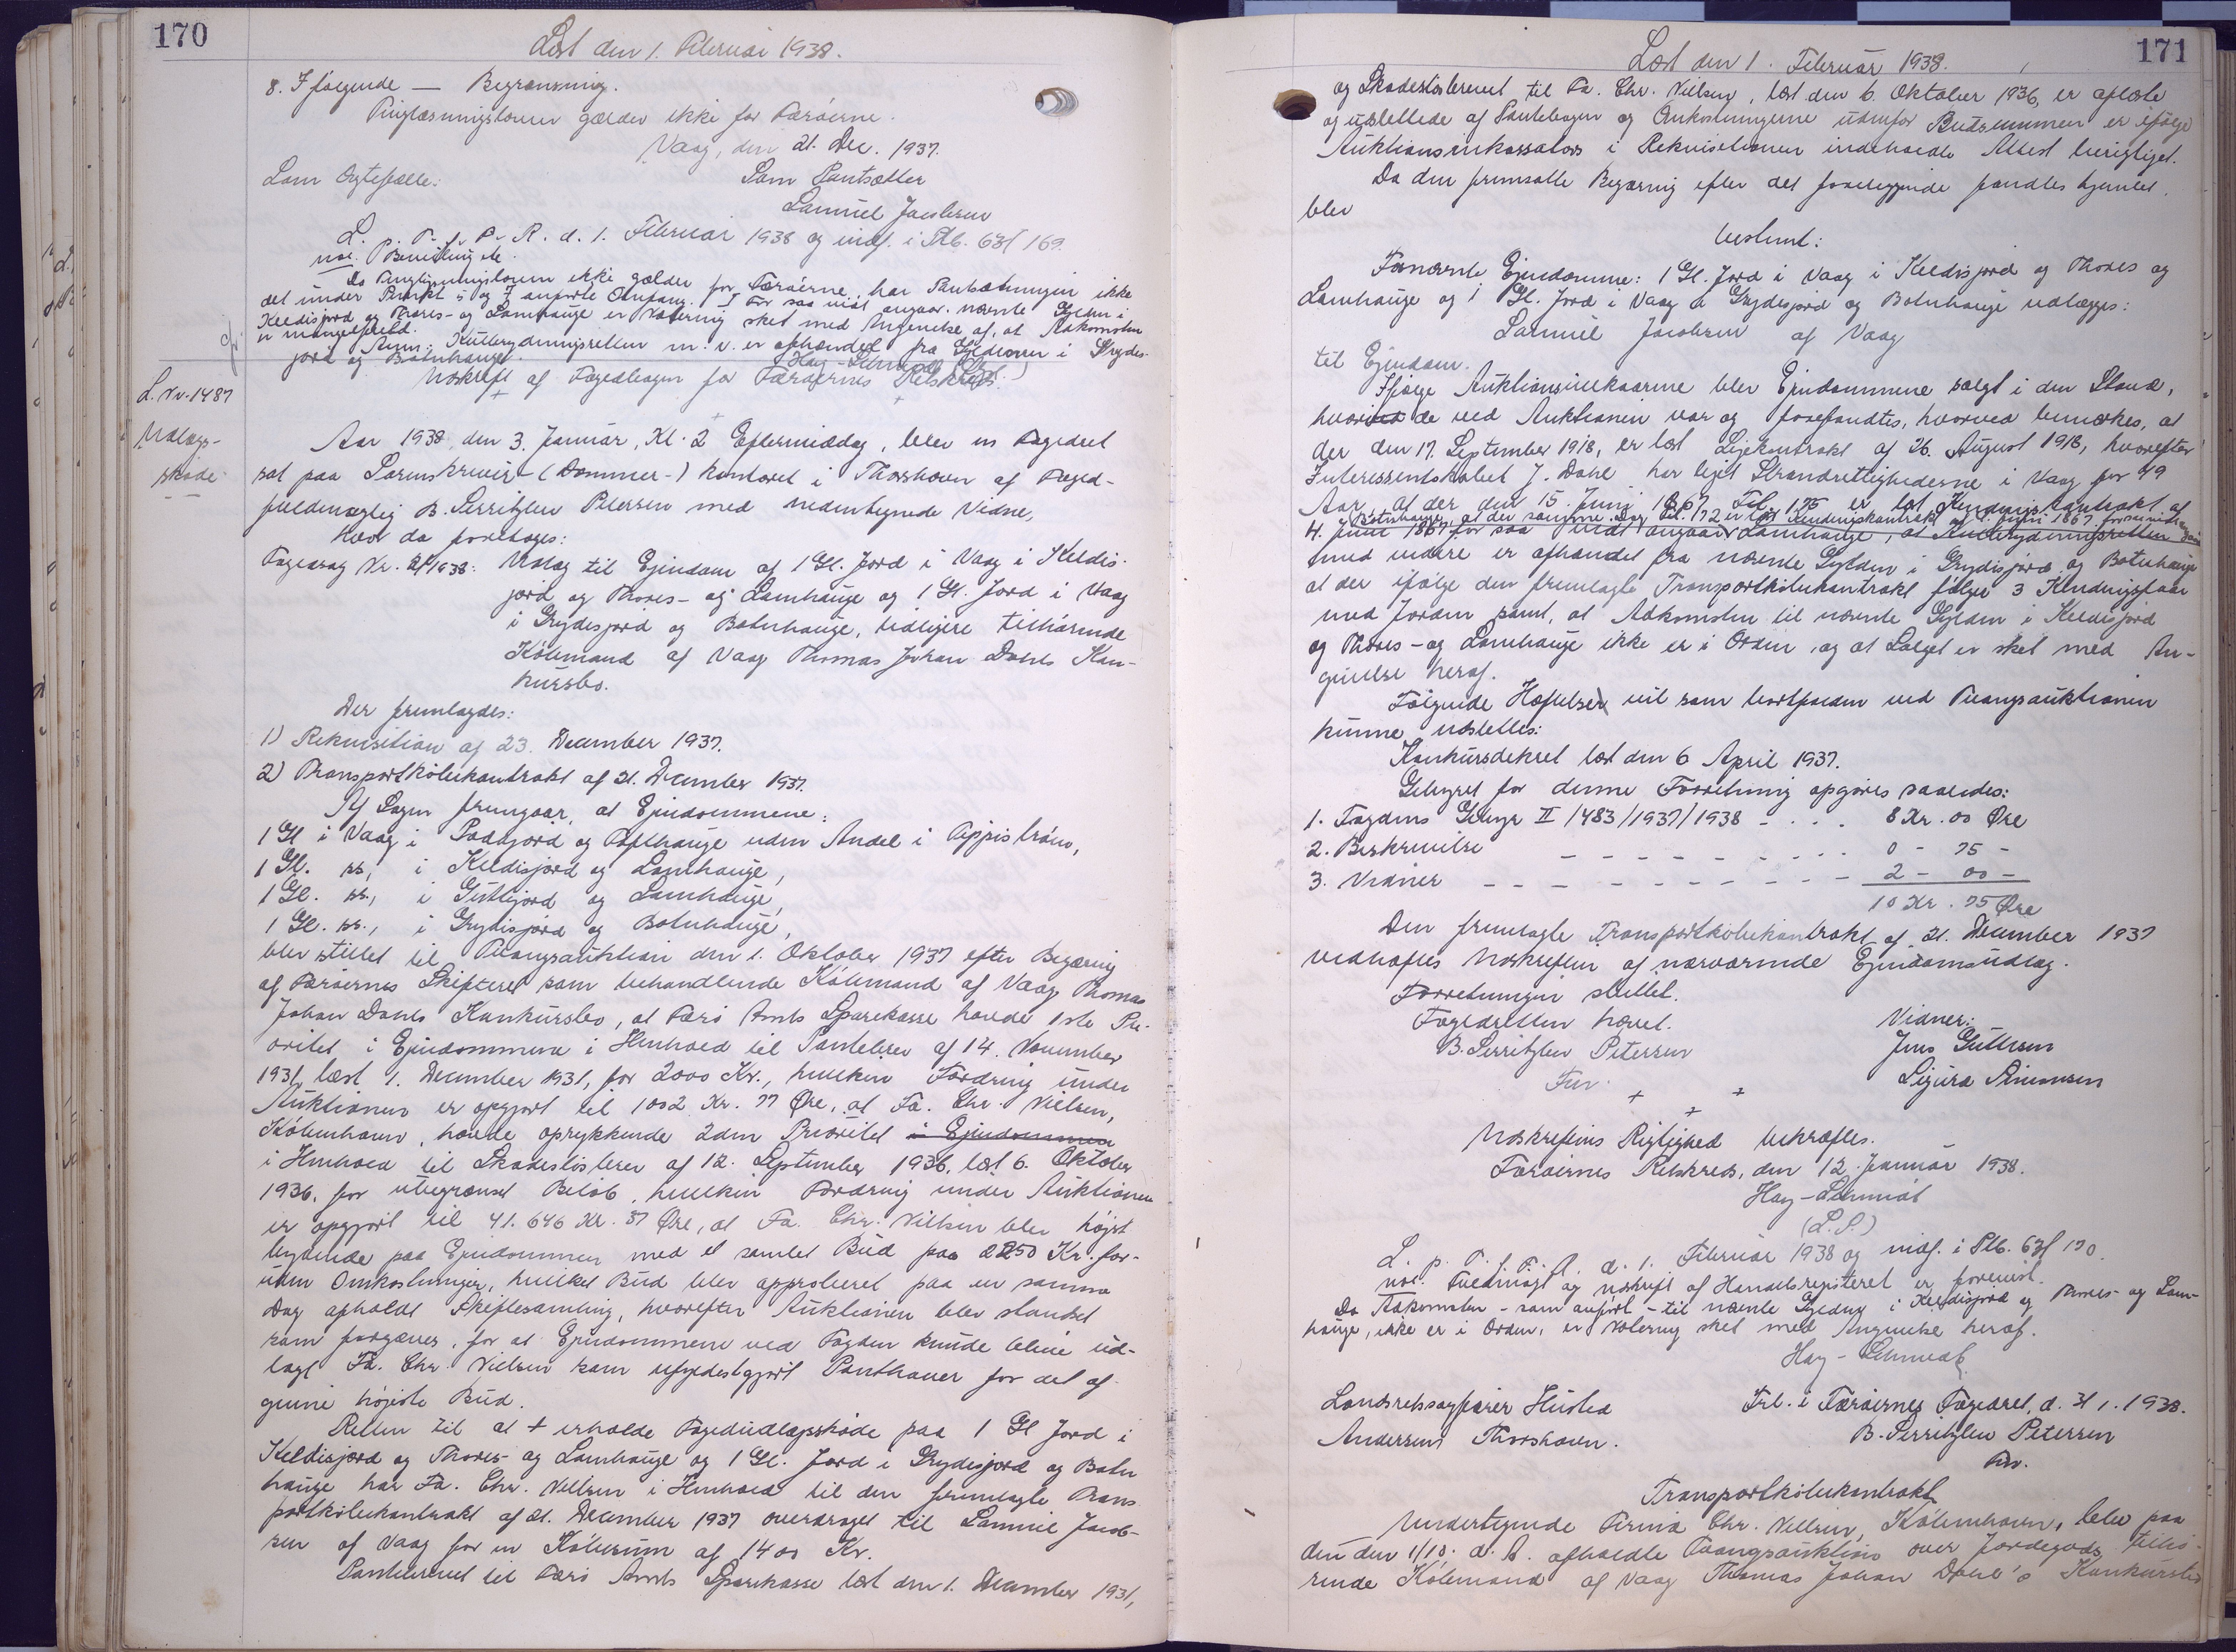 170
Læst den 1. Februar 1938.
8. I følgende — Begrænsning.
Tinglæsningsloven gælder ikke for Færøerne.
Vaag, den 21. Dec. 1937.
Som Ægtefælle: Som Pantsætter
Samuel Jacobsen
L. p. T. f. F. R. d. 1. Februar 1938 og indf. i Ptb. 63 f 169.
Da Tinglysningsloven ikke gælder for Færøerne, har Pantsætningen ikke
det under Punkt 5 og 7 anførte Omfang. I for saa vidt angaar nævnte Gylden i
Keldisjord og Thores- og Lamhauge er Notering sket med Angivelse af, at Adkomsten
er mangelfuld.
Anm: Kultbrydningsretten m. v. er afhændet fra Gyldenen i Grydes-
jord og Botnhauge.
Hay-Schmidt
L. Nr. 1487
Udlægs-
skøde
Udskrift af Fogedbogen for Færøernes Retskreds.
Aar 1938, den 3. Januar, Kl. 2 Eftermiddag, blev en Fogedret
sat paa Sorenskriver- (Dommer-) kontoret i Thorshavn af Foged-
fuldmægtig B. Serritzlew Petersen med nedentegnede Vidne,
hvor da foretoges:
Fogedsag Nr. 2/1938: Udlæg til Ejendom af 1 Gl. Jord i Vaag i Keldis-
jord og Thores- og Lamhauge og 1 Gl. Jord i Vaag
i Grydesjord og Botnhauge, tidligere tilhørende
Købmand af Vaag Thomas Johan Dahls Kon-
kursbo.
Der fremlagdes:
1) Rekvisition af 23. December 1937.
2) Transportkøbekontrakt af 21. December 1937.
Af Sagen fremgaar, at Ejendommene:
1 Gl i Vaag i Fodgjord og Tofthauge uden Andel i Appistrøm,
1 Gl. ss., i Keldisjord og Lamhauge,
1 Gl. ss., i Guttisjord og Lamhauge,
1 Gl. ss., i Grydisjord og Botnhauge,
blev stillet til Tvangsauktion den 1. Oktober 1937 efter Begæring
af Færøernes Skifteret som behandlende Købmand af Vaag Thomas
Johan Dahls Konkursbo, at Færø Amts Sparekasse havde 1ste Pri-
oritet i Ejendommene i Henhold til Pantebrev af 14. November
1931, læst 1. December 1931, for 2000 Kr., hvilken Fordring under
Auktionen er opgjort til 1002 Kr. 77 Øre, at Fa. Chr. Nielsen,
København, havde oprykkende 2den Prioritet i Ejendommene
i Henhold til Skadesløsbrev af 12. September 1936, læst 6. Oktober
1936, for ubegrænset Beløb, hvilken Fordring under Auktionen
er opgjort til 41.646 Kr. 37 Øre, at Fa. Chr. Nielsen blev højst
bydende paa Ejendommen med et samlet Bud paa 2250 Kr. for-
uden Omkostninger, hvilket Bud blev approberet paa en samme
Dag afholdt Skiftesamling, hvorefter Auktionen blev standset
som forgæves, for at Ejendommene ved Fogden kunde blive ud-
lagt Fa. Chr. Nielsen som ufyldestgjort Panthaver for det af-
givne højeste Bud.
Retten til at + erholde Fogedudlægsskøde paa 1 Gl Jord i
Keldisjord og Thores- og Lamhauge og 1 Gl. Jord i Grydesjord og Botn
hauge har Fa. Chr. Nielsen i Henhold til den fremlagte Trans
portkøbekontrakt af 21. December 1937 overdraget til Samuel Jacob-
sen af Vaag for en Købesum af 1400 Kr.
Pantebrevet til Færø Amts Sparekasse læst den 1. December 1931,
171
Læst den 1. Februar 1938.
og Skadesløsbrevet til Fa. Chr. Nielsen, læst den 6. Oktober 1936, er aflæste
og udslettede af Pantebogen og Omkostningerne udenfor Budsummen er ifølge
Auktionsinkassators i Rekvisitionen indeholdte Attest berigtiget.
Da den fremsatte Begæring efter det foreliggende fandtes hjemlet,
blev
bestemt:
Fornævnte Ejendomme: 1 Gl. Jord i Vaag i Keldisjord og Thores og
Lamhauge og 1 Gl. Jord i Vaag i Grydesjord og Botnhauge udlægges:
Samuel Jacobsen af Vaag
til Ejendom.
Ifølge Auktionsvilkaarene blev Ejendommene solgt i den Stand,
hvori de ved Auktionen var og forefandtes, hvorved bemærkes, at
der den 17. September 1918, er læst Lejekontrakt af 26. August 1918, hvorefter
Interessentskabet J. Dahl har lejet Strandrettighederne i Vaag for 49
Aar, at der den 15. Juni 1867 Fol. 175 er læst Kendingskontrakt af
4. Juni 1867 for saa vidt angaar Lamhauge, at Kultbrydningsretten
Botnhauge, at der samme Dag Fol. 172 er læst Kendingskontrakt af 1. Juni 1867
med videre er afhændet fra nævnte Gylden i Grydisjord og Botnhauge
at der ifølge den fremlagte Transportkøbekontrakt følger 3 Kendingsfaar
med Jorden samt, at Adkomsten til nævnte Gylden i Keldisjord
og Thores- og Lamhauge ikke er i Orden, og at Salget er sket med An-
givelse heraf.
Følgende Hæftelser vil som bortfaldne ved Tvangsauktionen
kunne udslettes:
Konkursdekret læst den 6 April 1937.
Gebyret for denne Forretning opgøres saaledes:
1. Fogdens Gebyr II /483/1937/1938 - . . . 8 Kr. 00 Øre
2. Beskrivelse - - - - - - - - 0 - 75 -
3. Vidner - - - - - - - - 2 - 00 -
10 Kr. 75 Øre
Den fremlagte Transportkøbekontrakt af 21. December 1937
vedhæftes Udskriften af nærværende Ejendomsudlæg.
Forretningen sluttet.
Fogedretten hævet. Vidner:
B. Serritzlew Petersen Jens Guttesen
Fm. Sigurd Simonsen
Udskriftens Rigtighed bekræftes.
Færøernes Retskreds, den 12. Januar 1938.
Hay-Schmidt
(L.S.)
L. p. T. f. F. R. d. 1. Februar 1938 og indf. i Ptb. 63 f 170.
Fuldmagt og Udskrift af Handelsregisteret er forevist.
Da Adkomsten - som anført - til nævnte Gylden i Keldisjord og Thores- og Lam-
hauge, ikke er i Orden, er Notering sket med Angivelse heraf.
Hay-Schmidt
Landsretssagfører Husted Frl. i Færøernes Fogedret, d. 3/1. 1938.
Andersens Thorshavn. B. Serritzlew Petersen
Fm.
Transportkøbekontrakt
Undertegnede Firma Chr. Nielsen, København, blev paa
den den 1/10. d. A. afholdte Tvangsauktion over Jordegods tilhø-
rende Købmand af Vaag Thomas Johan Dahl's Konkursbo